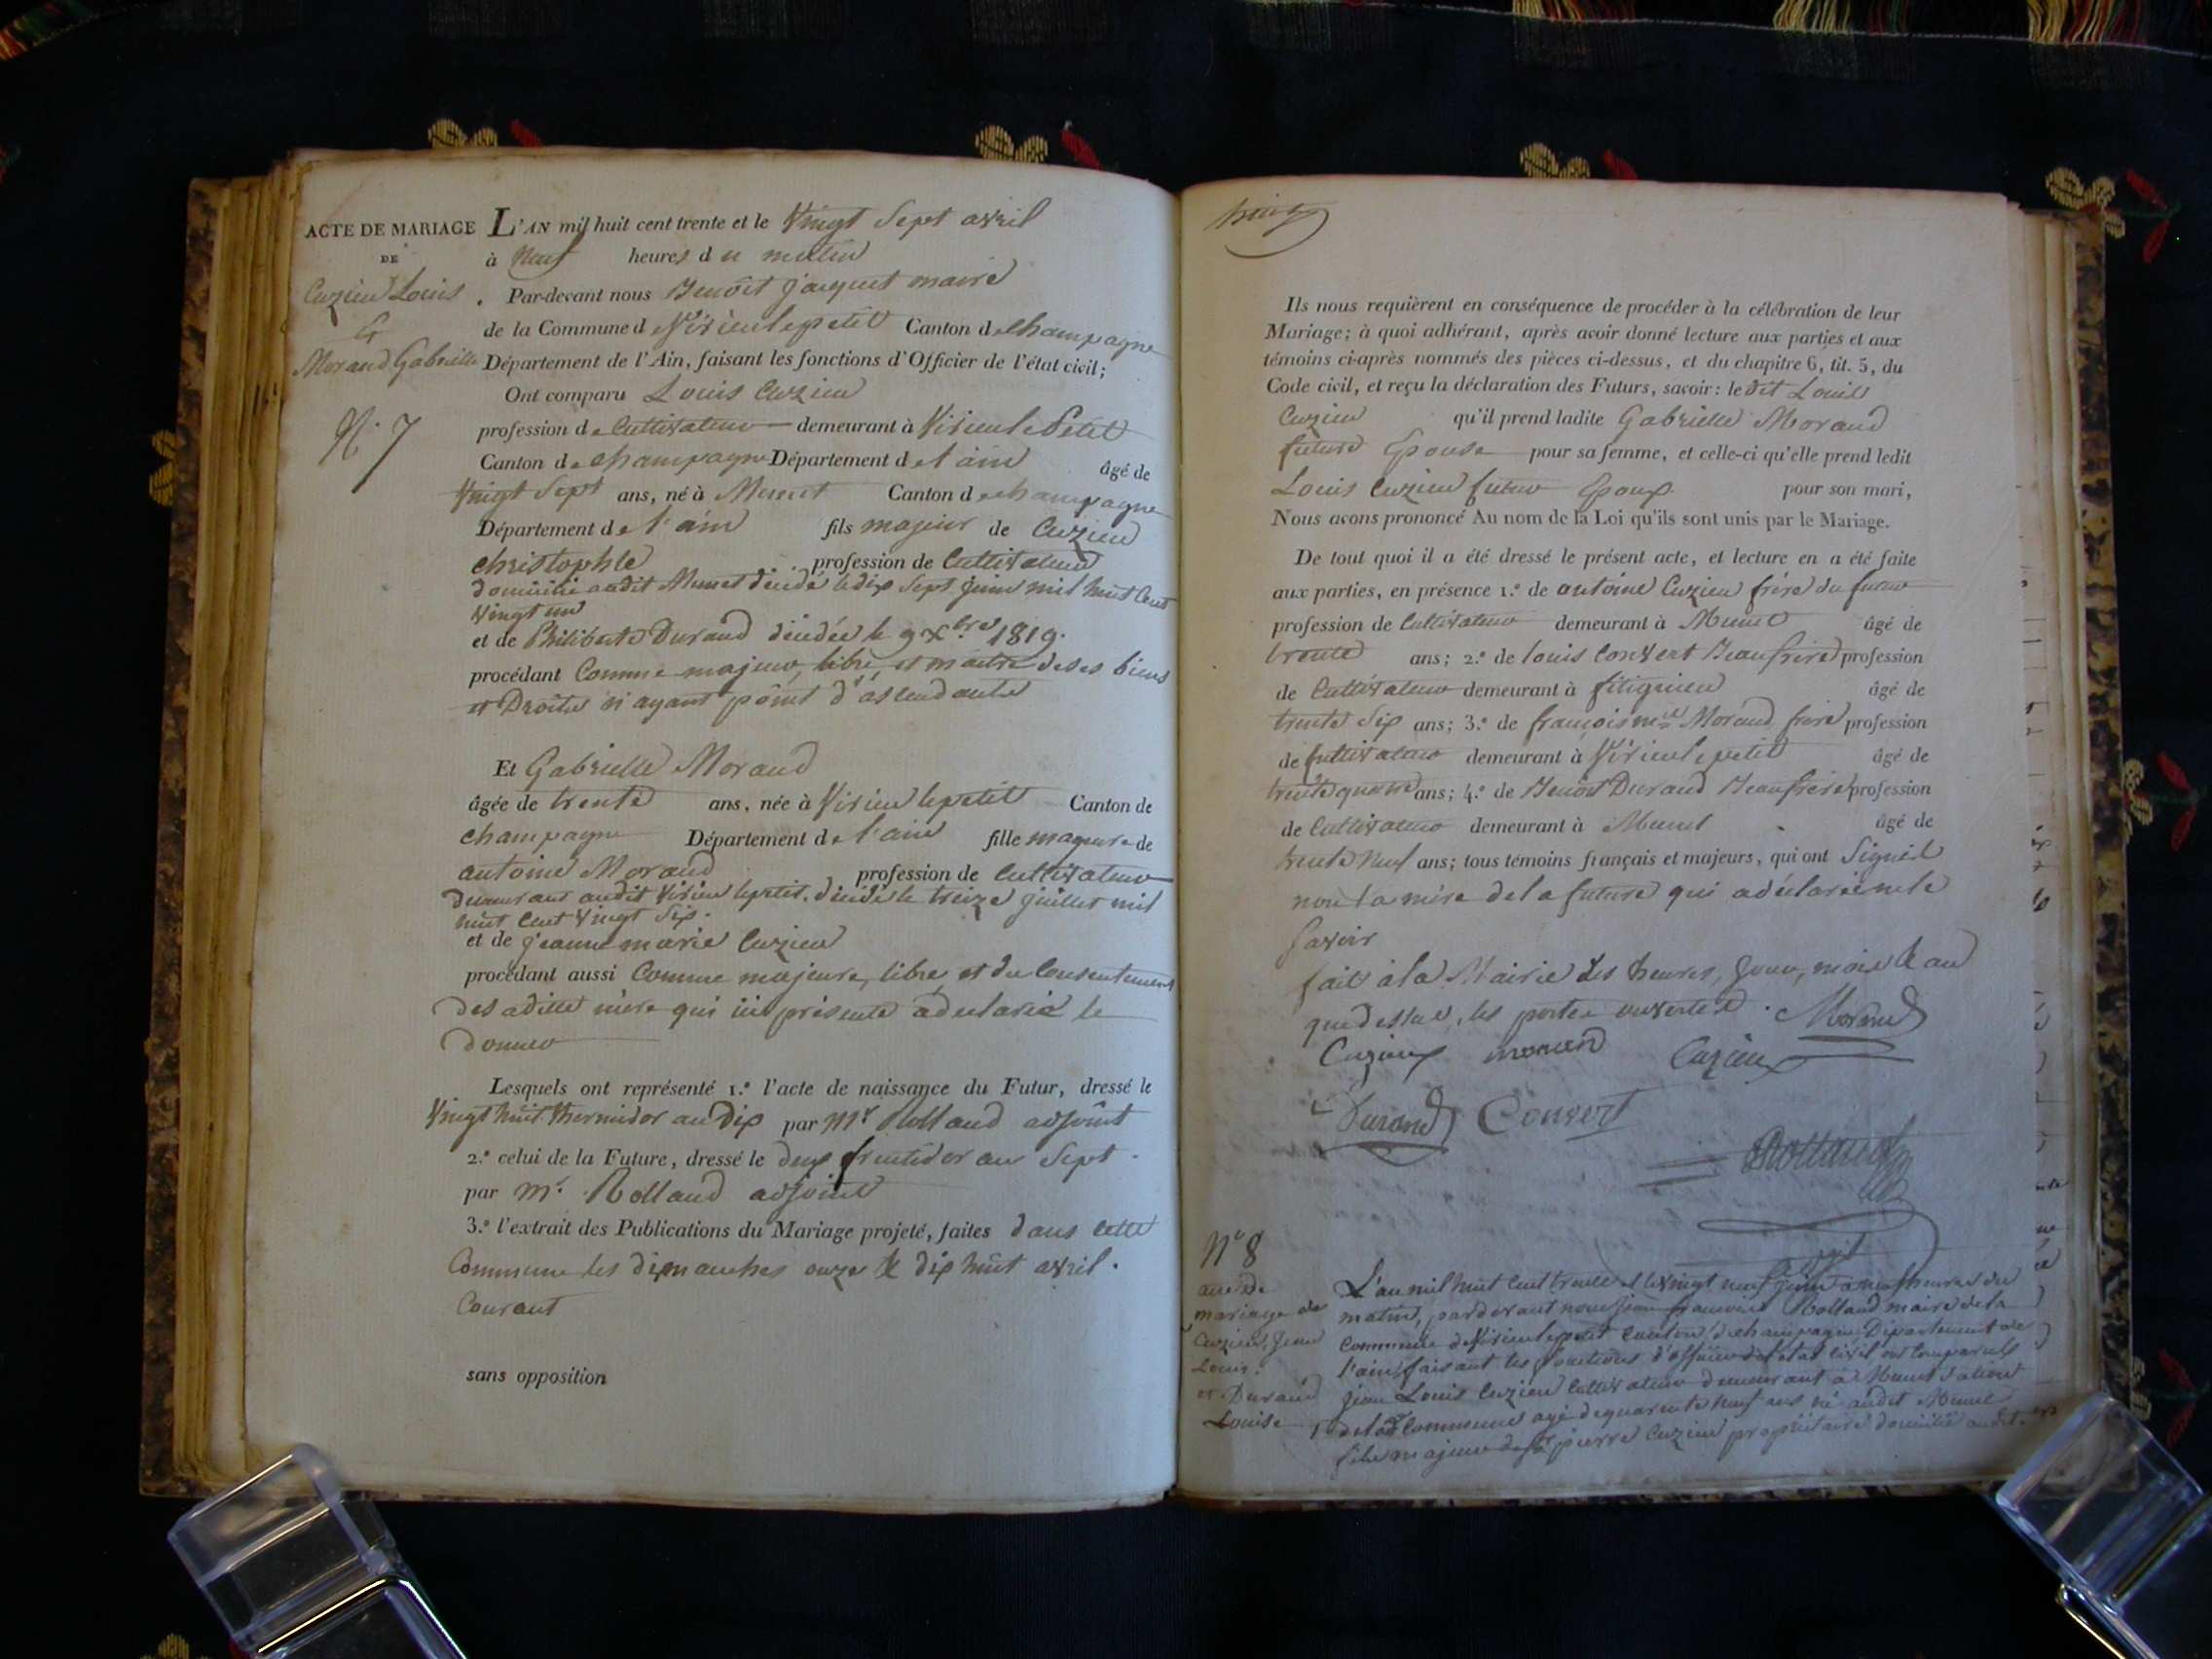 ACTE DE MARIAGE
DE
Cuzieu Louis
&
Morand Gabrielle
N.º 7
L'AN mil huit cent trente et le Vingt Sept avril
à Neuf heures du matin
Par-devant nous Benoît Jacquet maire
de la Commune de Virieu le petit Canton de champagne
Département de l'Ain, faisant les fonctions d'Officier de l'état civil;
Ont comparu Louis Cuzieu
profession de Cultivateur demeurant à Virieu le Petit
Canton de champagne Département de l'ain âgé de
Vingt Sept ans, né à Munet Canton de champagne
Département de l'ain fils majeur de Cuzieu
christophle profession de Cultivateur
domicilié audit Munet décédé le dix Sept juin mil huit Cent
Vingt un
et de Philiberte Durand décédée le 9 Xbre 1819.
procédant Comme majeur, libre et maitre de ses biens
et Droits n'ayant point d'ascendants
Et Gabrielle Morand
âgée de trente ans, née à Virieu le petit Canton de
champagne Département de l'ain fille majeure de
antoine Morand profession de Cultivateur
demeurant audit Virieu le petit. décédé le treize juillet mil
huit Cent Vingt Six.
et de jeanne marie Cuzieu
procédant aussi Comme majeure, libre, et du Consentement
de sadite mère qui ici présente a déclaré le
donner
Lesquels ont représenté 1.º l'acte de naissance du Futur, dressé le
Vingt huit thermidor an Dix par Mr Rolland adjoint
2.º celui de la Future, dressé le deux fructidor an Sept.
par mr. Rolland adjoint
3.º l'extrait des Publications du Mariage projeté, faites dans cette
Commune les dimanches onze & dix huit avril.
Courant
sans opposition
huit
Ils nous requièrent en conséquence de procéder à la célébration de leur
Mariage; à quoi adhérant, après avoir donné lecture aux parties et aux
témoins ci-après nommés des pièces ci-dessus, et du chapitre 6, tit. 5, du
Code civil, et reçu la déclaration des Futurs, savoir: le dit Louis
Cuzieu qu'il prend ladite Gabrielle Morand
future Epouse pour sa femme, et celle-ci qu'elle prend ledit
Louis Cuzieu futur Epoux pour son mari,
Nous avons prononcé Au nom de la Loi qu'ils sont unis par le Mariage.
De tout quoi il a été dressé le présent acte, et lecture en a été faite
aux parties, en présence 1.º de antoine Cuzieu frère du futur
profession de Cultivateur demeurant à Munet âgé de
trente ans; 2.º de louis Convert Beaufrère profession
de Cultivateur demeurant à fitignieu âgé de
trente Six ans; 3.º de françois mie Morand frère profession
de Cultivateur demeurant à Virieu le petit âgé de
trente quatre ans; 4.º de Benoît Durand Beaufrère profession
de Cultivateur demeurant à Munet âgé de
trente Neuf ans; tous témoins français et majeurs, qui ont Signé
non la mère de la future qui a déclaré ne le
Savoir
fait à la Mairie les heures, jour, mois & an
que dessus, les portes ouvertes. Morand
Cuzieu morand Cuzieu
Durand Convert
Rolland
Nº 8
acte de
mariage de
Cuzieu, Jean
Louis.
et Durand
Louise
L'an mil huit Cent trente et le Vingt neuf juin à neuf heures du
matin, pardevant nous jean françois Rolland maire de la
Commune de Virieu le petit Canton de champagne Département de
l'ain, faisant les fonctions d'officier de l'etat civil ont Comparu
jean Louis Cuzieu Cultivateur demeurant à Munet
de la Commune agé de quarente Neuf ans né audit Munet
fils majeur de pierre Cuzieu propriétaire domicilié audit